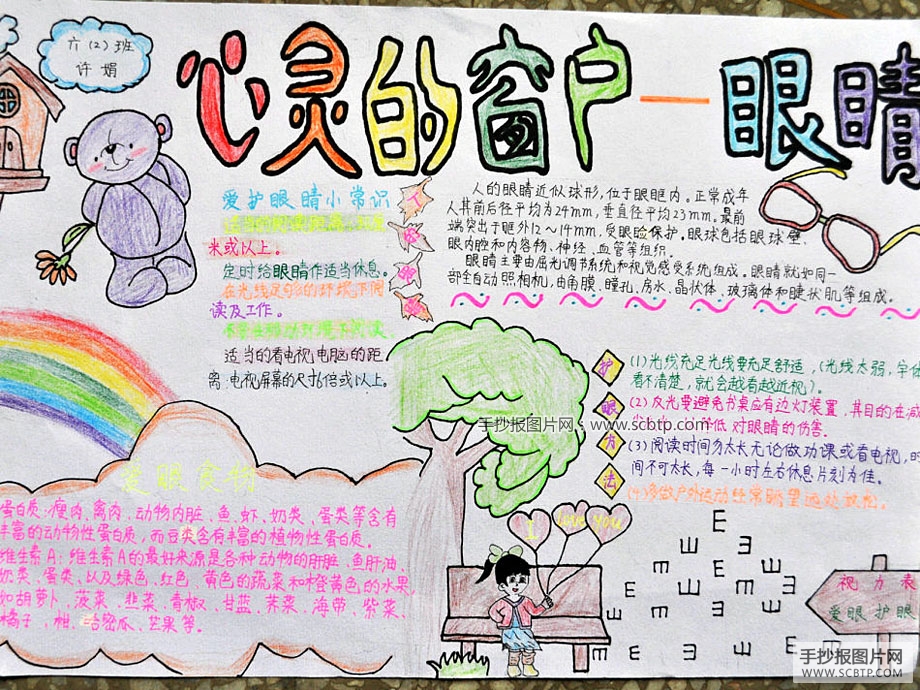 六(2)班
许娟
心灵的窗户—眼睛
爱护眼睛小常识
米或以上。
定时给眼睛作适当休息。
在光线足够的环境下阅
读及工作。
适当的看电视,电脑的距
离:电视屏幕的尺寸6倍或以上。
人的眼睛近似球形,位于眼眶内。正常成年
人其前后径平均为24mm,垂直径平均23mm。最前
端突出于眶外12~14mm,受眼睑保护。眼球包括眼球壁、
眼内腔和内容物、神经、血管等组织。
眼睛主要由屈光调节系统和视觉感受系统组成。眼睛就如同一
部全自动照相机,由角膜、瞳孔、房水、晶状体、玻璃体和睫状肌等组成。
护眼方法
(1)光线充足光线要充足舒适,(光线太弱,字体
看不清楚,就会越看越近视)。
(2)反光要避免书桌应有边灯装置,其目的在减
对眼睛的伤害.
(3)阅读时间勿太长无论做功课或看电视,时
间不可太长,每一小时左右休息片刻为佳。
(4)多做户外运动经常眺望远处放松.
手抄报图片网 www.scbtp.com
爱眼食物
蛋白质:瘦肉、禽肉、动物内脏、鱼、虾、奶类、蛋类等含有
丰富的动物性蛋白质,而豆类含有丰富的植物性蛋白质。
维生素A:维生素A的最好来源是各种动物的肝脏、鱼肝油、
奶类、蛋类、以及绿色、红色、黄色的蔬菜和橙黄色的水果,
如胡萝卜、菠菜、韭菜、青椒、甘蓝、荠菜、海带、紫菜、
橘子、柑、哈密瓜、芒果等。
I love you
视力表
爱眼护眼
手抄报图片网
WWW.SCBTP.COM